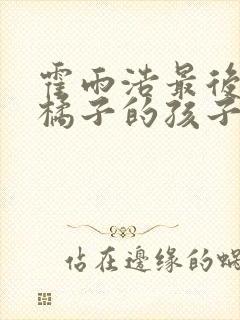 霍雨浩最後
橘子的孩子
佔在邊缘的蝸